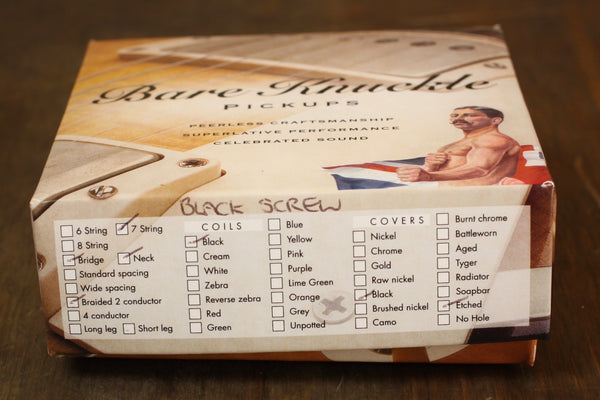 Bare Knuckle
PICKUPS
PEERLESS CRAFTSMANSHIP
SUPERLATIVE PERFORMANCE
CELEBRATED SOUND
BLACK SCREW
6 String
7 String
8 String
Bridge
Neck
Standard spacing
Wide spacing
Braided 2 conductor
4 conductor
Long leg
Short leg
COILS
Black
Cream
White
Zebra
Reverse zebra
Red
Green
Blue
Yellow
Pink
Purple
Lime Green
Orange
Grey
Unpotted
COVERS
Nickel
Chrome
Gold
Raw nickel
Black
Brushed nickel
Camo
Burnt chrome
Battleworn
Aged
Tyger
Radiator
Soapbar
Etched
No Hole